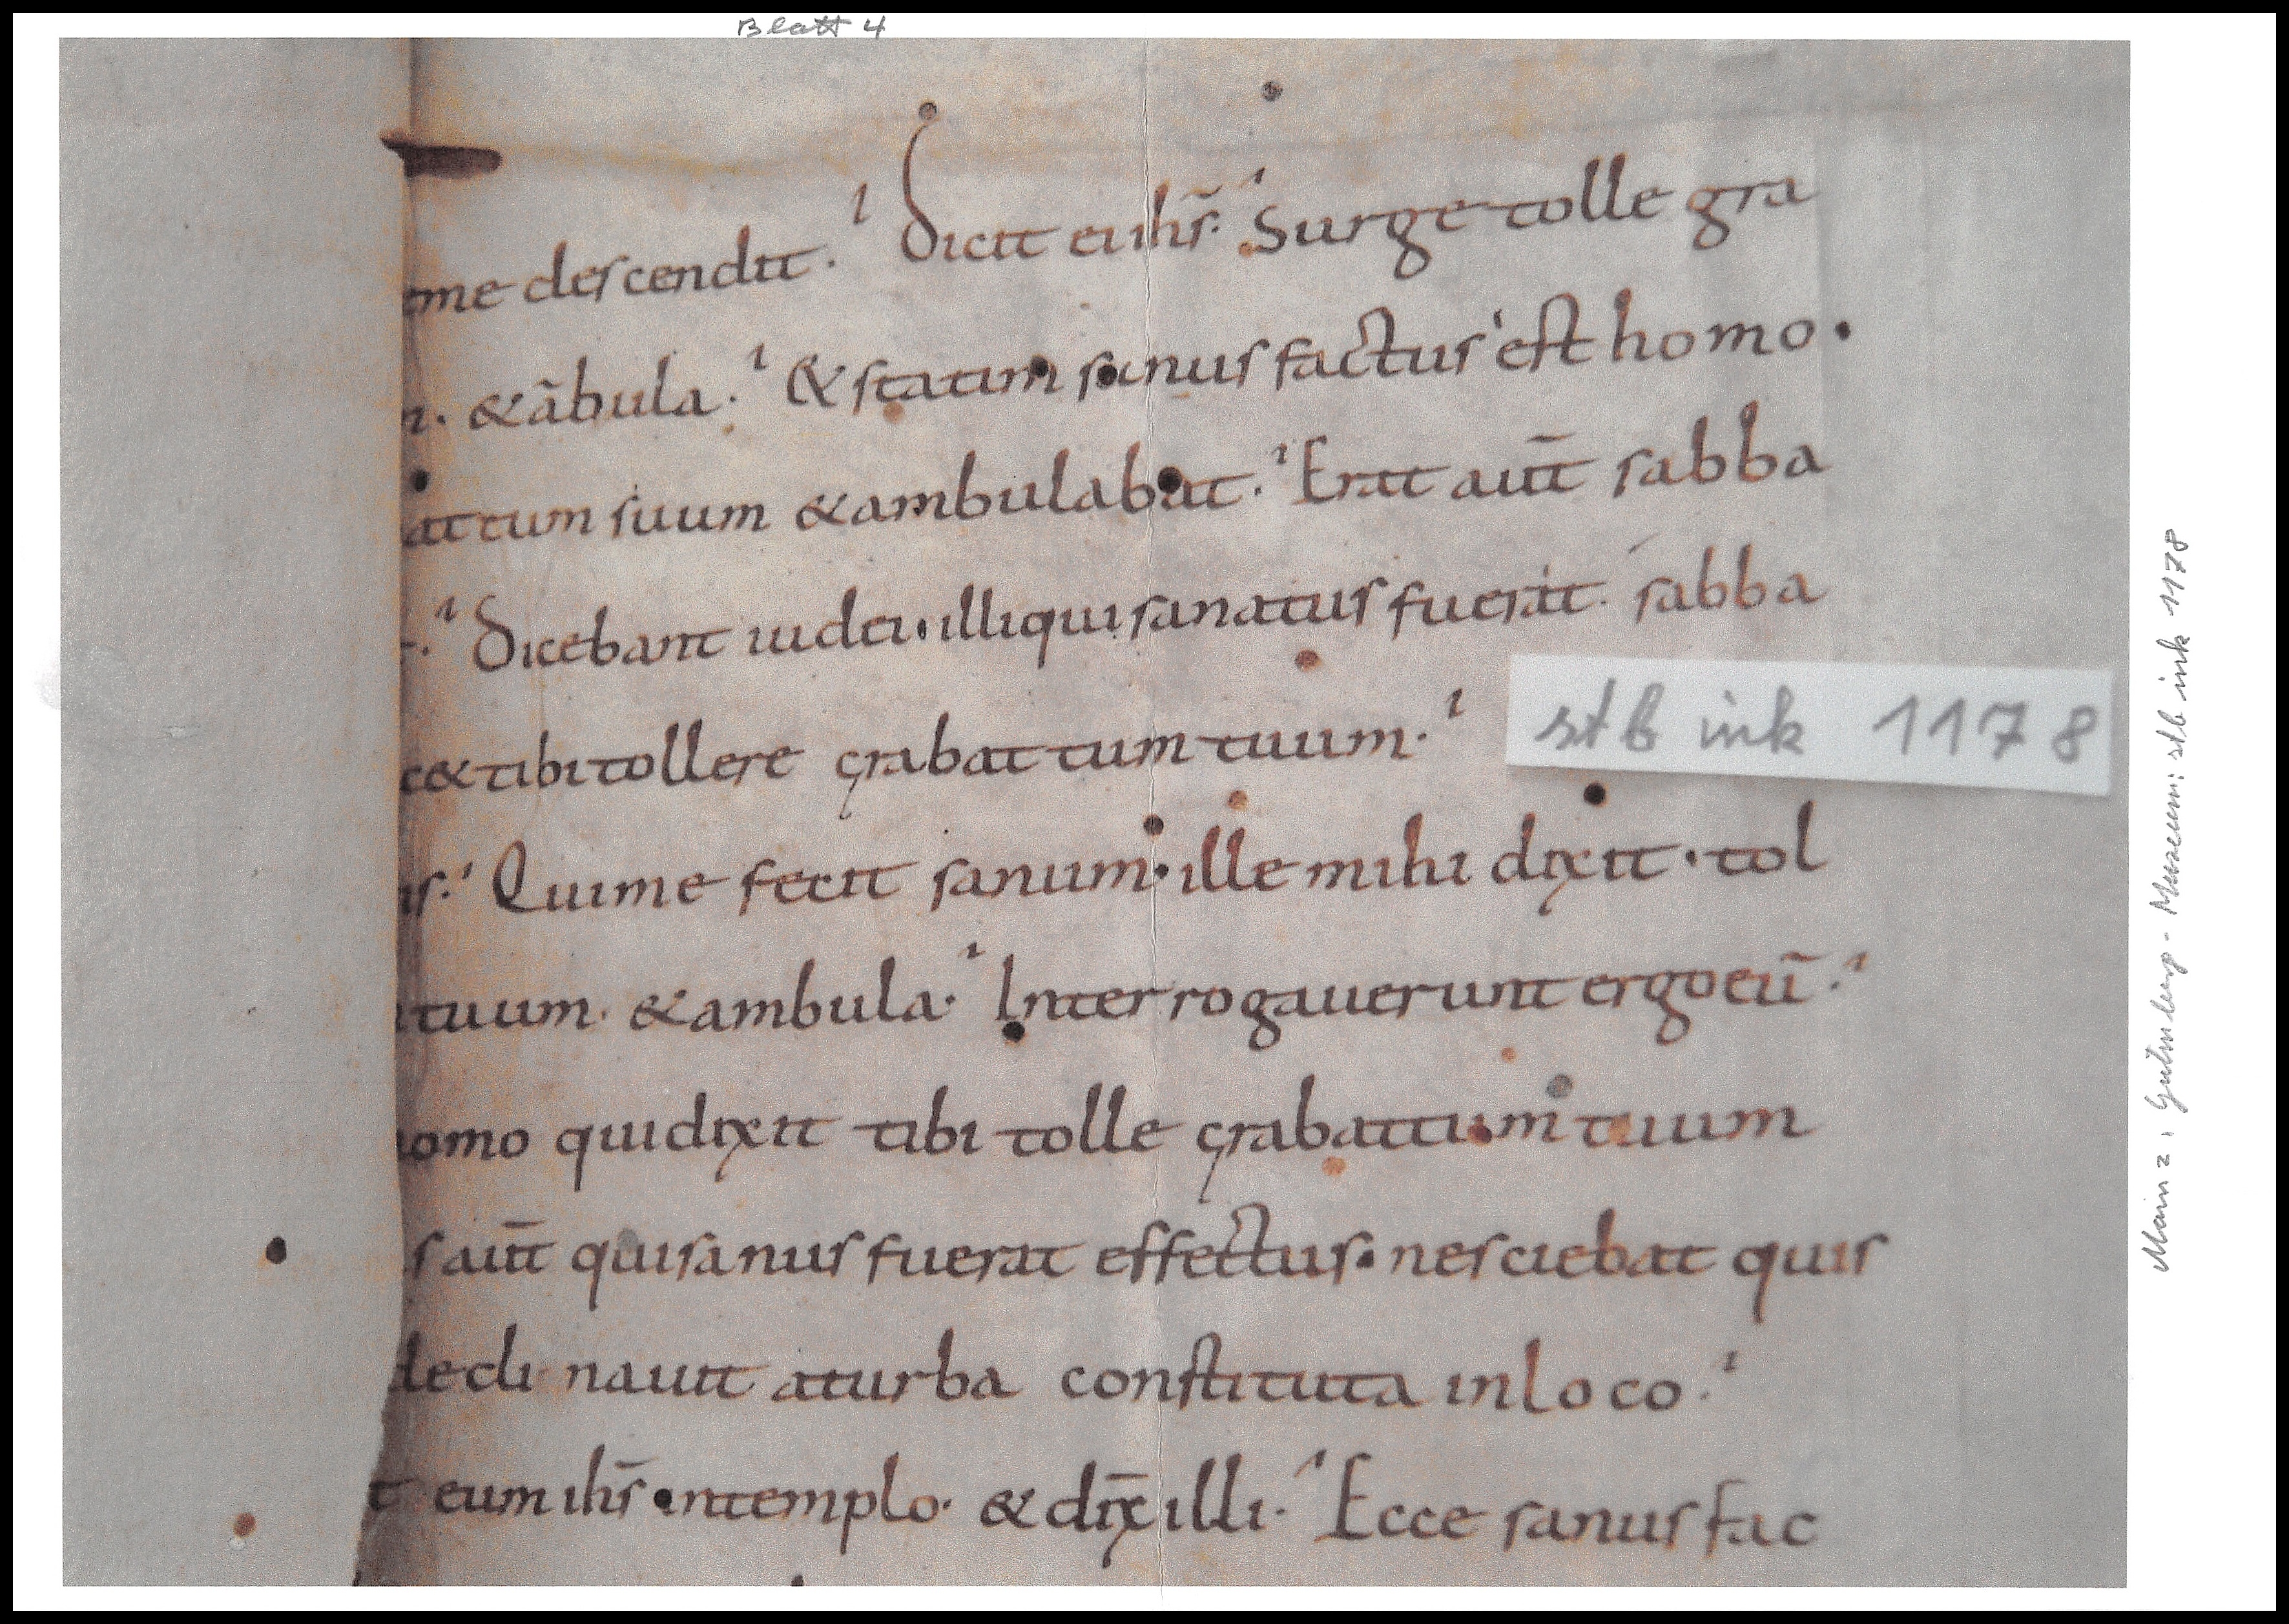 Blatt 4
me descendit. Dicit ei ihs̄. Surge tolle gra
n. & ābula. & statim sanus factus est homo.
attum suum & ambulabat. Erat aut̄ sabba
Dicebant iudei. illi qui sanatus fuerat. sabba
c& tibi tollere grabattum tuum.
stb ink 1178
is. Qui me fecit sanum. ille mihi dixit. tol
tuum. & ambula. Interrogauerunt ergo eū.
omo qui dixit tibi tolle grabattum tuum
s aut̄ qui sanus fuerat effectus. nesciebat quis
decli nauit a turba constituta in loco.
t eum ihs̄ in templo. & dix̄ illi. Ecce sanus fac
Mainz: Gutenberg-Museum: stb ink 1178